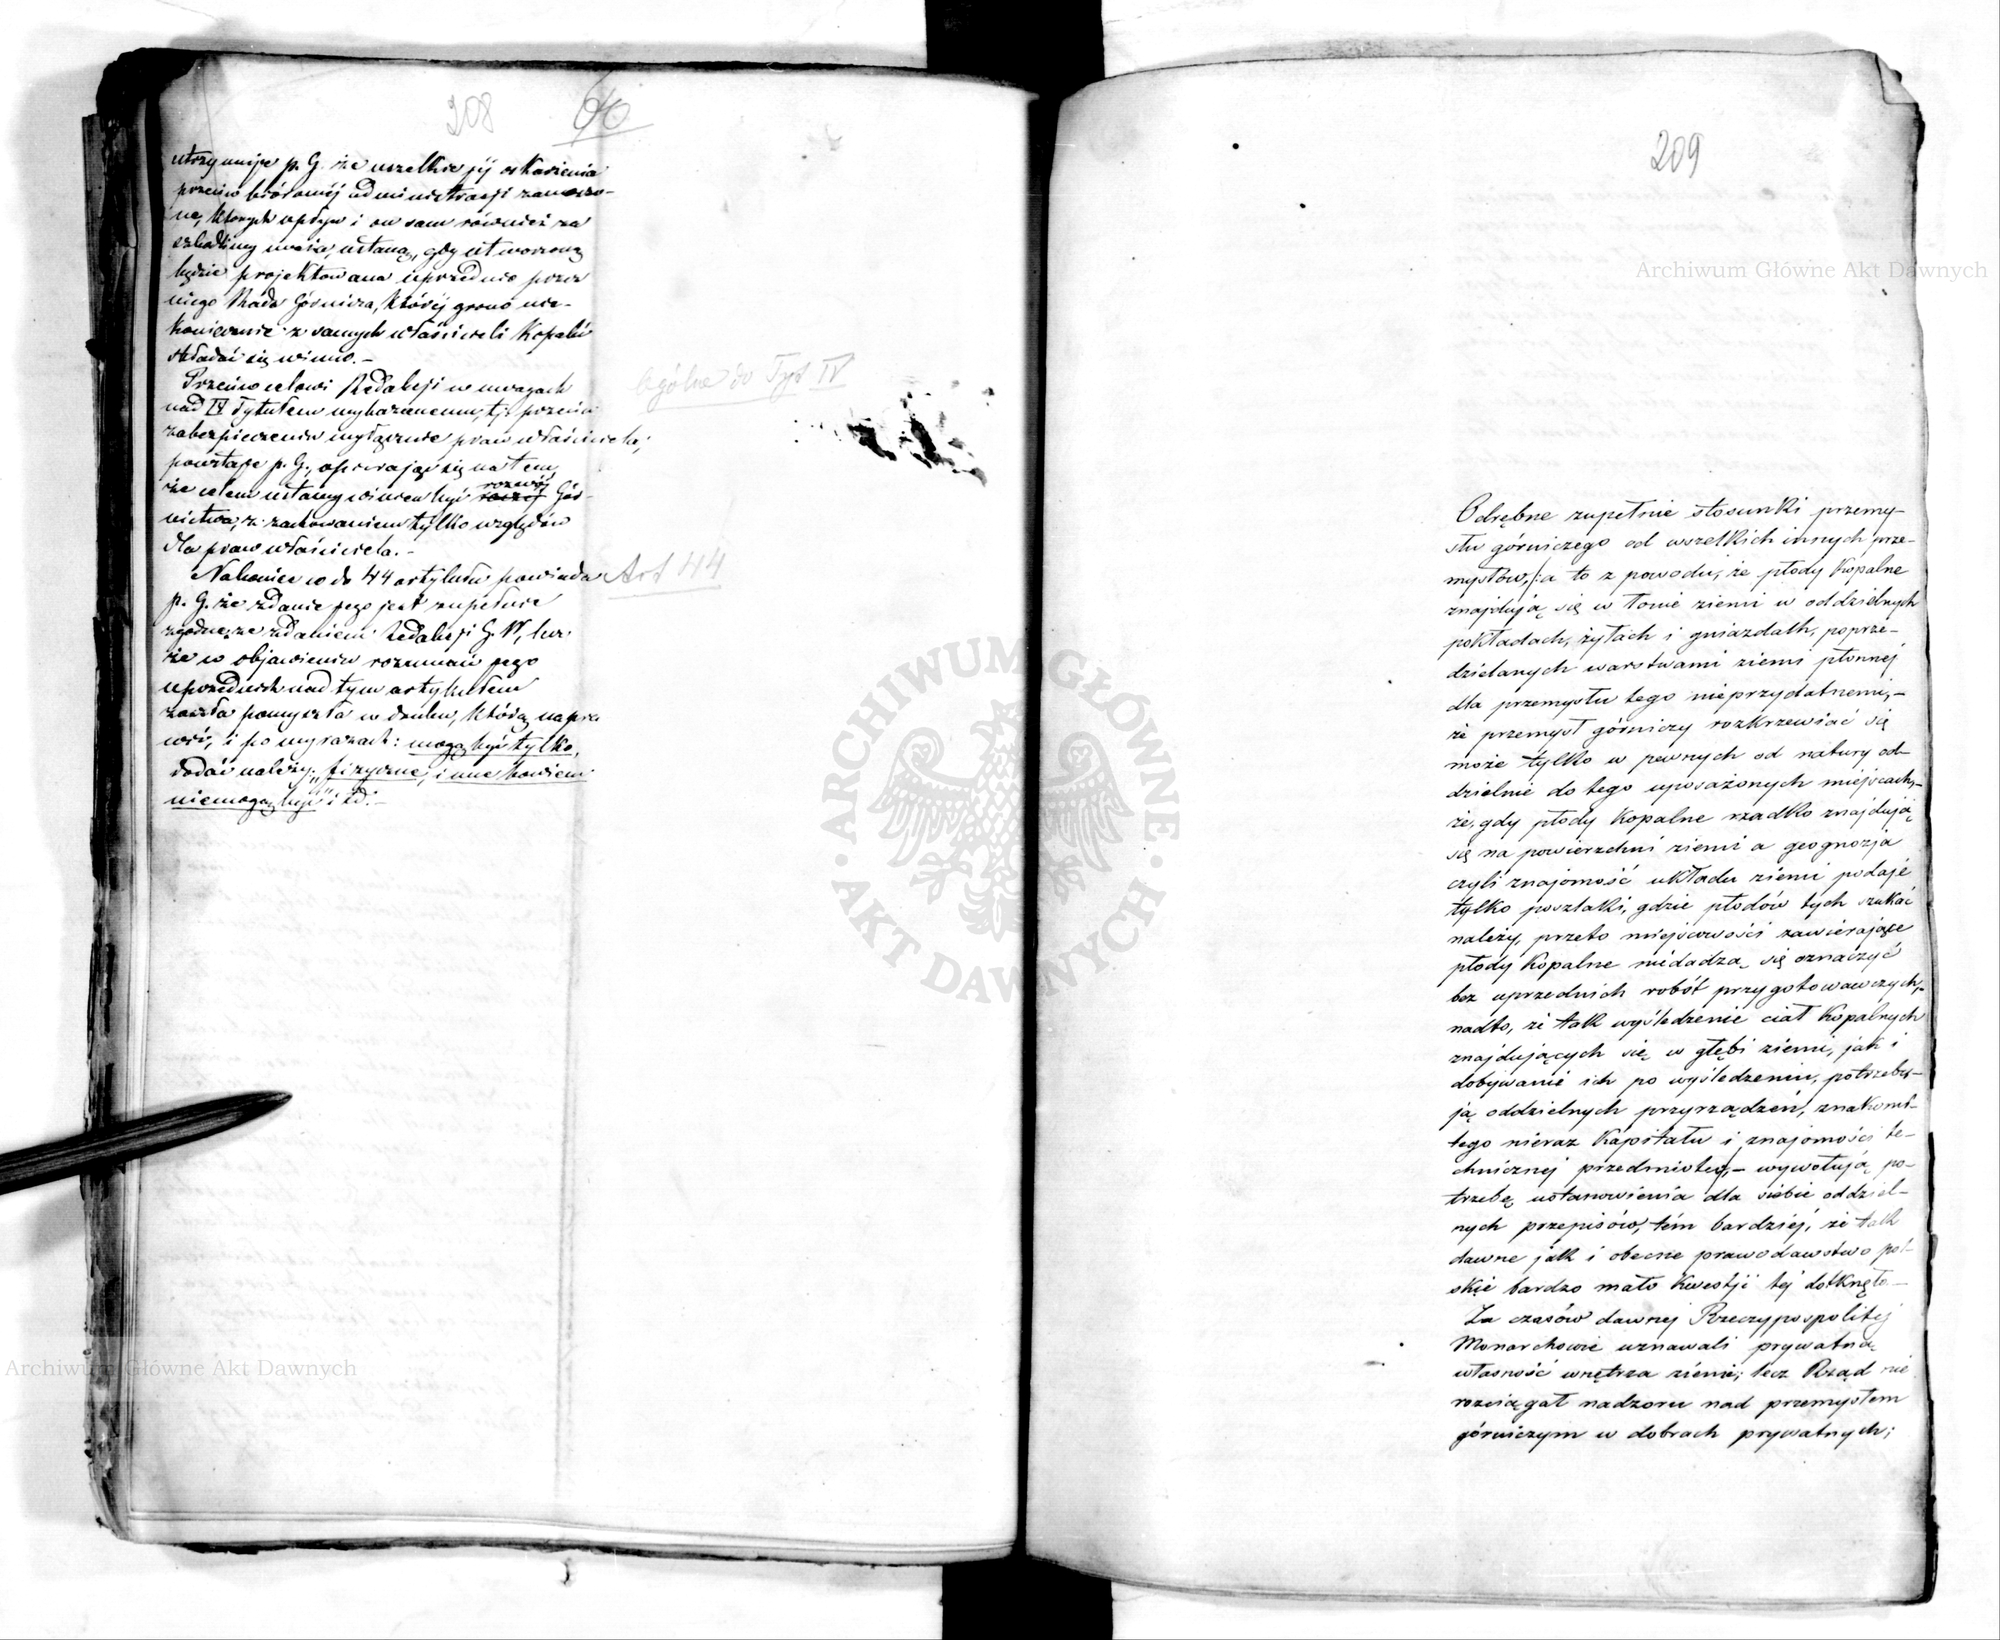 208
60
utrzymuje p. G. że wszelkie jej oskarżenia
przeciw administracji zanoszo-
ne, których wpływ i on sam również za
szkodliwy uważa, ustaną, gdy utworzoną
będzie projektowana uprzednio przez
niego Rada Górnicza, której grono nie-
koniecznie z samych właścicieli Kopalń
składać się winno.–
Przeciw celowi Redakcji w uwagach
nad IV Tytułem wykazanemu, tj. przeciw
zabezpieczeniu wyłącznie praw właściciela;
powstaje p. G., opierając się na tem,
że celem ustawy winien być rozwój Gór-
nictwa, z zachowaniem tylko względów
dla praw właściciela.–
Nakoniec co do 44 artykułu powiada
p. G. że zdanie jego jest zupełnie
zgodne ze zdaniem Redakcji G. W, lecz
że w objawieniu rozumowań jego
uprzednich nad tym artykułem
zaszła pomyłka w druku, którą napra
wić, i po wyrazach: mogą być tylko,
dodać należy „fizyczne, inne bowiem
niemogą być" itd.–
ogólne do Tyt IV
Art 44
209
Odrębne zupełnie stosunki przemy-
słu górniczego od wszelkich innych prze-
mysłów, a to z powodu, że płody Kopalne
znajdują się w łonie ziemi w oddzielnych
pokładach, żyłach i gniazdach, poprze-
dzielanych warstwami ziemi płonnej
dla przemysłu tego nieprzydatnemi,–
że przemysł górniczy rozkrzewiać się
może tylko w pewnych od natury od-
dzielnie do tego uposażonych miejscach,–
że, gdy płody Kopalne rzadko znajdują
się na powierzchni ziemi a geognozja
czyli znajomość układu ziemi podaje
tylko poszlaki, gdzie płodów tych szukać
należy, przeto miejscowości zawierające
płody Kopalne niedadzą się oznaczyć
bez uprzednich robót przygotowawczych,–
nadto, że tak wyśledzenie ciał Kopalnych
znajdujących się w głębi ziemi, jak i
dobywanie ich po wyśledzeniu, potrzebu-
ją oddzielnych przyrządzeń, znakomi-
tego nieraz Kapitału i znajomości te-
chnicznej przedmiotu,– wywołują po-
trzebę ustanowienia dla siebie oddziel-
nych przepisów, tém bardziej, że tak
dawne jak i obecne prawodawstwo pol-
skie bardzo mało Kwestji tej dotknęło.–
Za czasów dawnej Rzeczypospolitej
Monarchowie uznawali prywatną
własność wnętrza ziemi; lecz Rząd nie
rozciągał nadzoru nad przemysłem
górniczym w dobrach prywatnych;
Archiwum Główne Akt Dawnych
Archiwum Główne Akt Dawnych
ARCHIWUM GŁÓWNE
AKT DAWNYCH